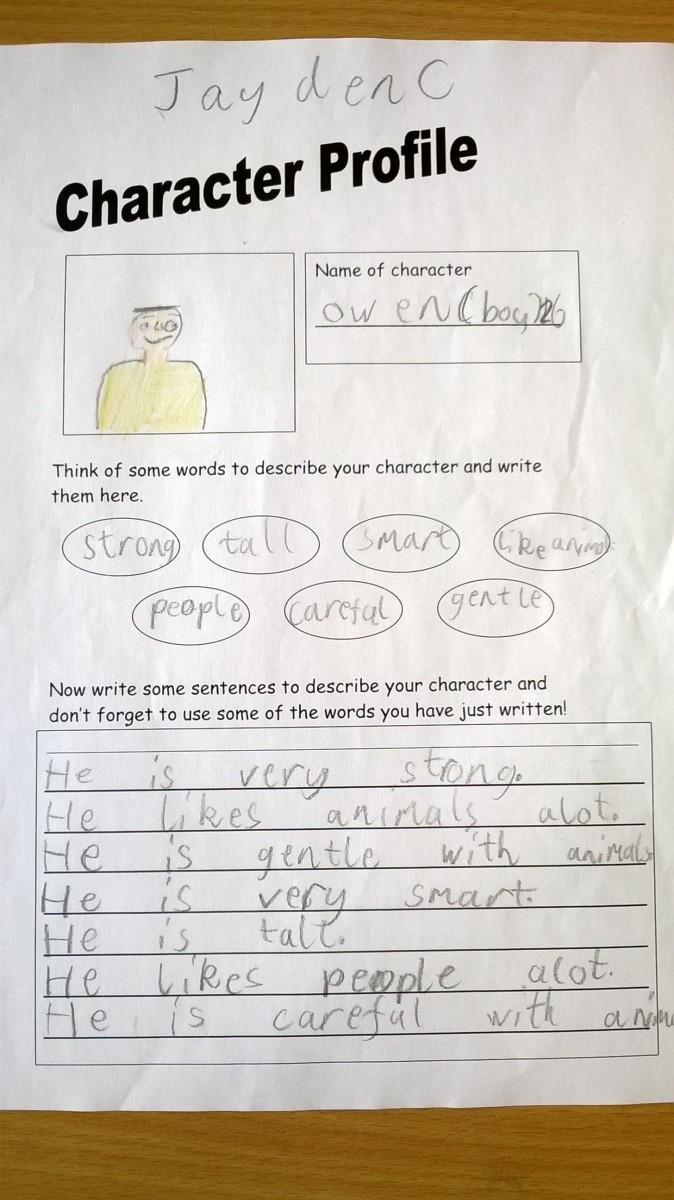 Jayden C
Character Profile
Name of character
owen (boy) 26
Think of some words to describe your character and write
them here.
strong tall smart like animals
people careful gentle
Now write some sentences to describe your character and
don't forget to use some of the words you have just written!
He is very strong.
He likes animals alot.
He is gentle with animals
He is very smart.
He is tall.
He likes people alot.
He is careful with anim